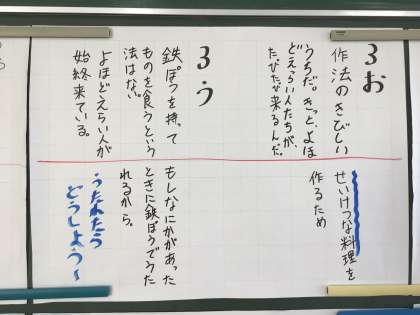 3お
作法のきびしい
うちだ。きっと、よほ
どえらい人たちが、
たびたび来るんだ。
せいけつな料理を
作るため
3う
鉄ぽうを持って
ものを食うという
法はない。
よほどえらい人が
始終来ている。
もしなにかがあった
ときに鉄ぽうでうた
れるから。
うたれたら
どうしよう〜